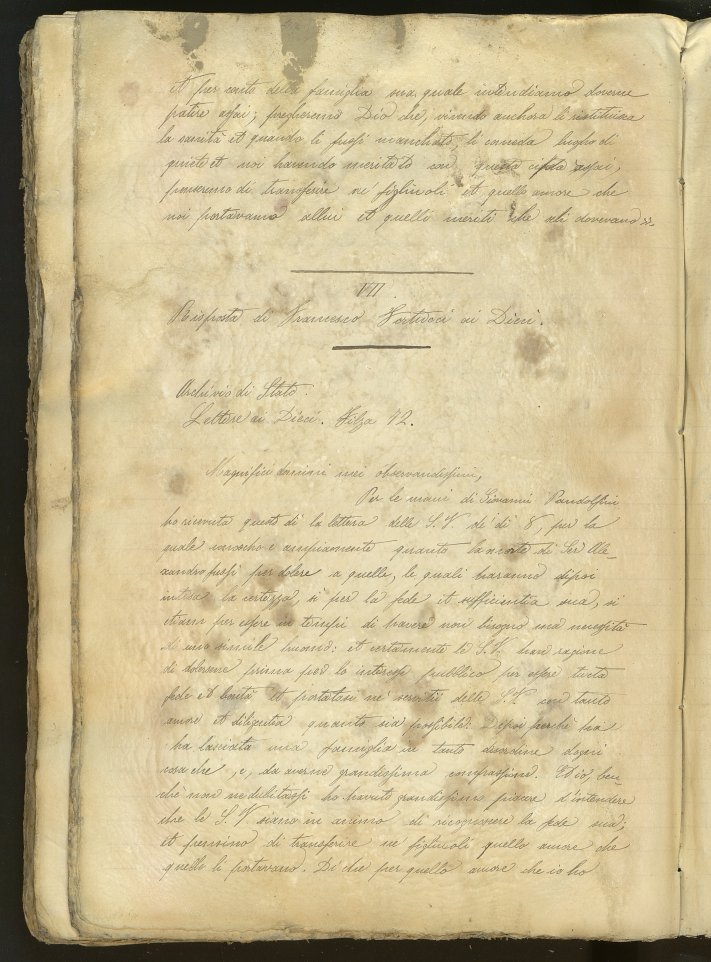 et per conto della famiglia sua quale intendiamo doverne
patire assai; pregheremo Dio che, vivendo anchora li restituisca
la sanità et quando li fussi manchato, li conceda luogho di
quiete et noi havendo meritato con questa città assai,
penseremo di transferire ne' figliuoli et quello amore che
noi portavamo allui et quelli meriti che gli dovevano
VII.
Risposta di Francesco Vettucci ai Dieci.
Archivio di Stato.
Lettere ai Dieci. Filza 72.
Magnifici domini mei observandissimi,
Per le mani di Giovanni Pandolfini
ho ricevuta questo dì la lettera delle S. V. de' dì 8, per la
quale conoscho ampiamente quanto la morte di Ser Ale-
xandro fussi per dolere a quelle, le quali haranno dipoi
intesa la certezza, sì per la fede et sufficientia sua, sì
etiam per essere in tempi di havere non bisogno ma necessità
di uno simile huomo: et certamente le S. V. han ragione
di dolersene prima per lo interesse pubblico per essere tucta
fede et bontà et portatosi ne' servitii delle S. V. con tanto
amore et diligentia quanto sia possibile. Dipoi perchè
ha lasciata una famiglia in tanto disordine d'ogni
cosa che, e, da averne grandissima compassione. Et io, ben-
chè non ne dubitassi ho havuto grandissimo piacere d'intendere
che le S. V. siano in animo di riconoscere la fede sua;
et pensino di transferire ne' figliuoli quello amore che
quelle li portavano. Di che per quello amore che io ho